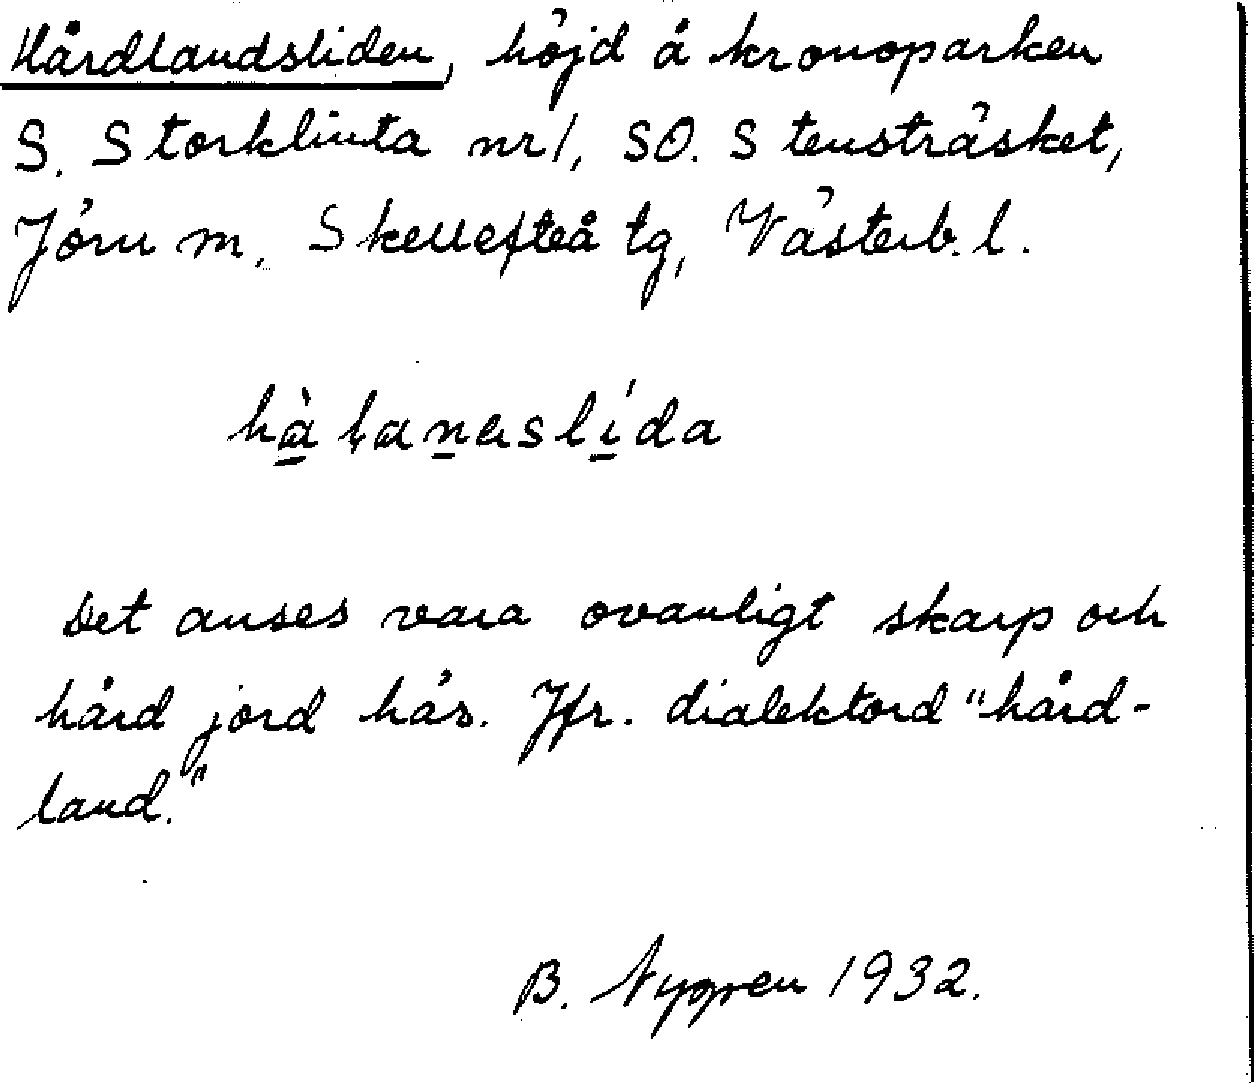 Hårdlandsliden, höjd å kronoparken
S. Storklinta nr 1, SO. Stensträsket,
Jörn m, Skellefteå tg, Västerb. l.
hå̀ l̥anaslída
Det anses vara ovanligt skarp och
hård jord här. Jfr. dialektord "hård-
land."
B. Nygren 1932.